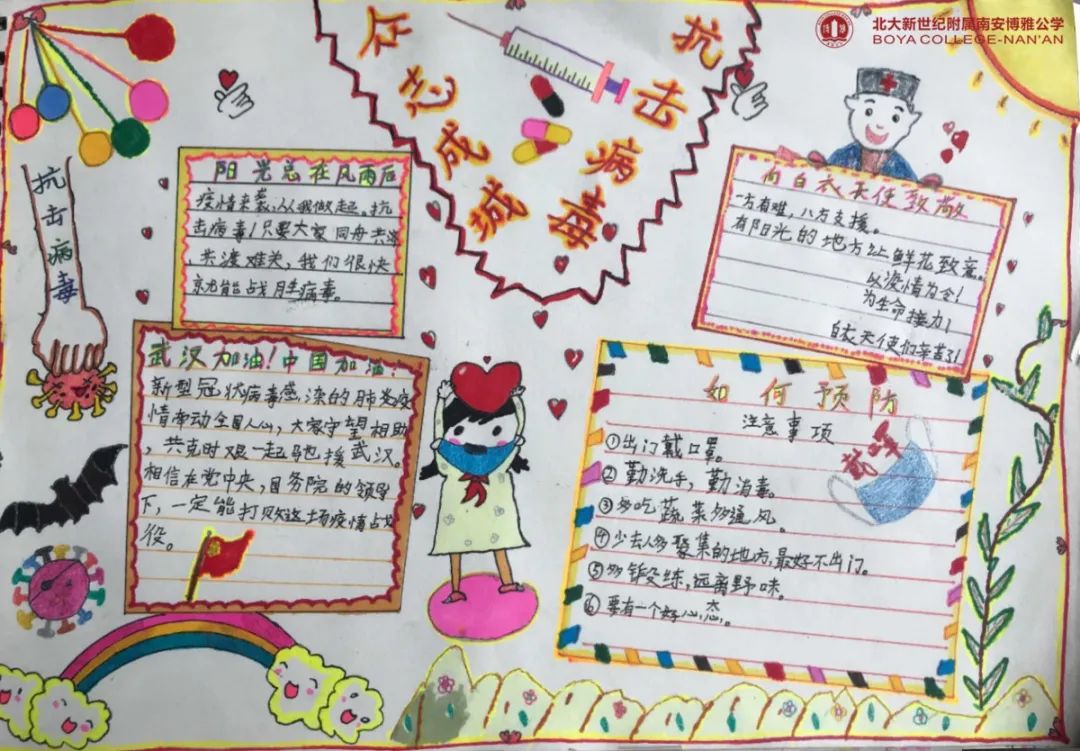 北大新世纪附属南安博雅公学
BOYA COLLEGE-NAN'AN
众志成城
抗击病毒
抗击病毒
阳光总在风雨后
疫情来袭，从我做起。抗
击病毒！只要大家同舟共济
，共渡难关，我们很快
就能战胜病毒。
向白衣天使致敬
一方有难，八方支援。
有阳光的地方让鲜花致意。
以疫情为令！
为生命接力！
白衣天使们辛苦了！
武汉加油！中国加油！
新型冠状病毒感染的肺炎疫
情牵动全国人心，大家守望相助
，共克时艰一起驰援武汉。
相信在党中央，国务院的领导
下，一定能打败这场疫情战
役。
如何预防
注意事项
①出门戴口罩。
②勤洗手，勤消毒。
③多吃蔬菜多通风。
④少去人多聚集的地方，最好不出门。
⑤多锻练，远离野味。
⑥要有一个好心态。